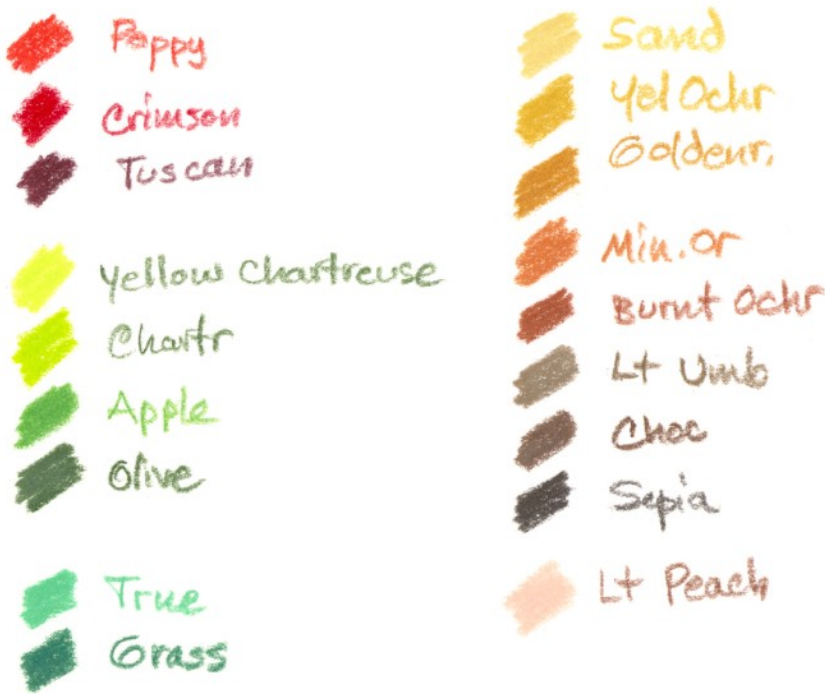 Poppy
Crimson
Tuscan
Yellow Chartreuse
Chartr
Apple
Olive
True
Grass
Sand
Yel Ochr
Goldenr.
Min. Or
Burnt Ochr
Lt Umb
Choc
Sepia
Lt Peach